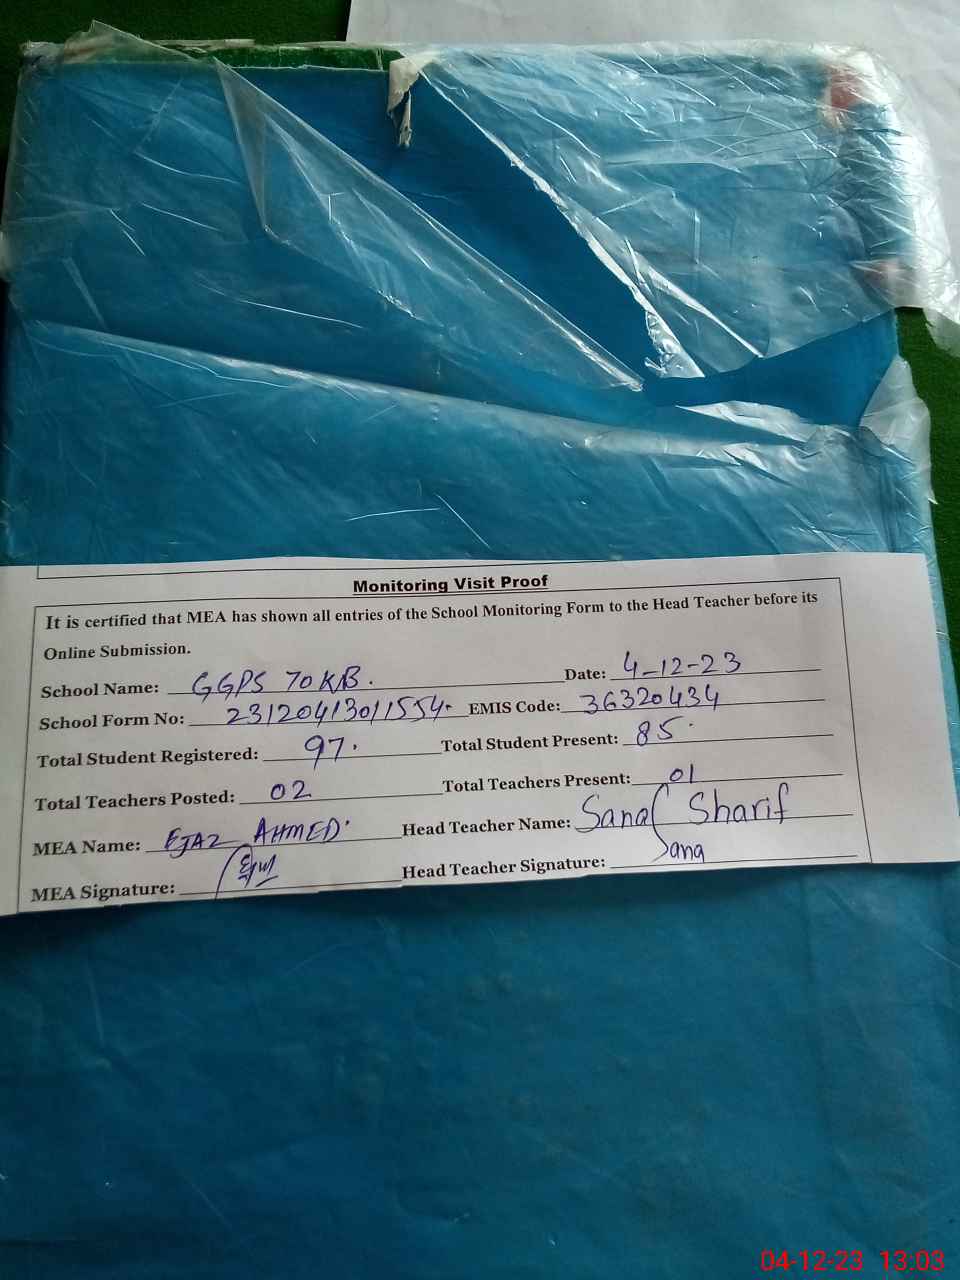 Monitoring Visit Proof
It is certified that MEA has shown all entries of the School Monitoring Form to the Head Teacher before its
Online Submission.
School Name: GGPS 70KB. Date: 4-12-23
School Form No: 23120413011554. EMIS Code: 36320434
Total Student Registered: 97. Total Student Present: 85.
Total Teachers Posted: 02 Total Teachers Present: 01
MEA Name: EJAZ AHMED. Head Teacher Name: Sana Sharif
MEA Signature: Head Teacher Signature: Sana
04-12-23 13:03